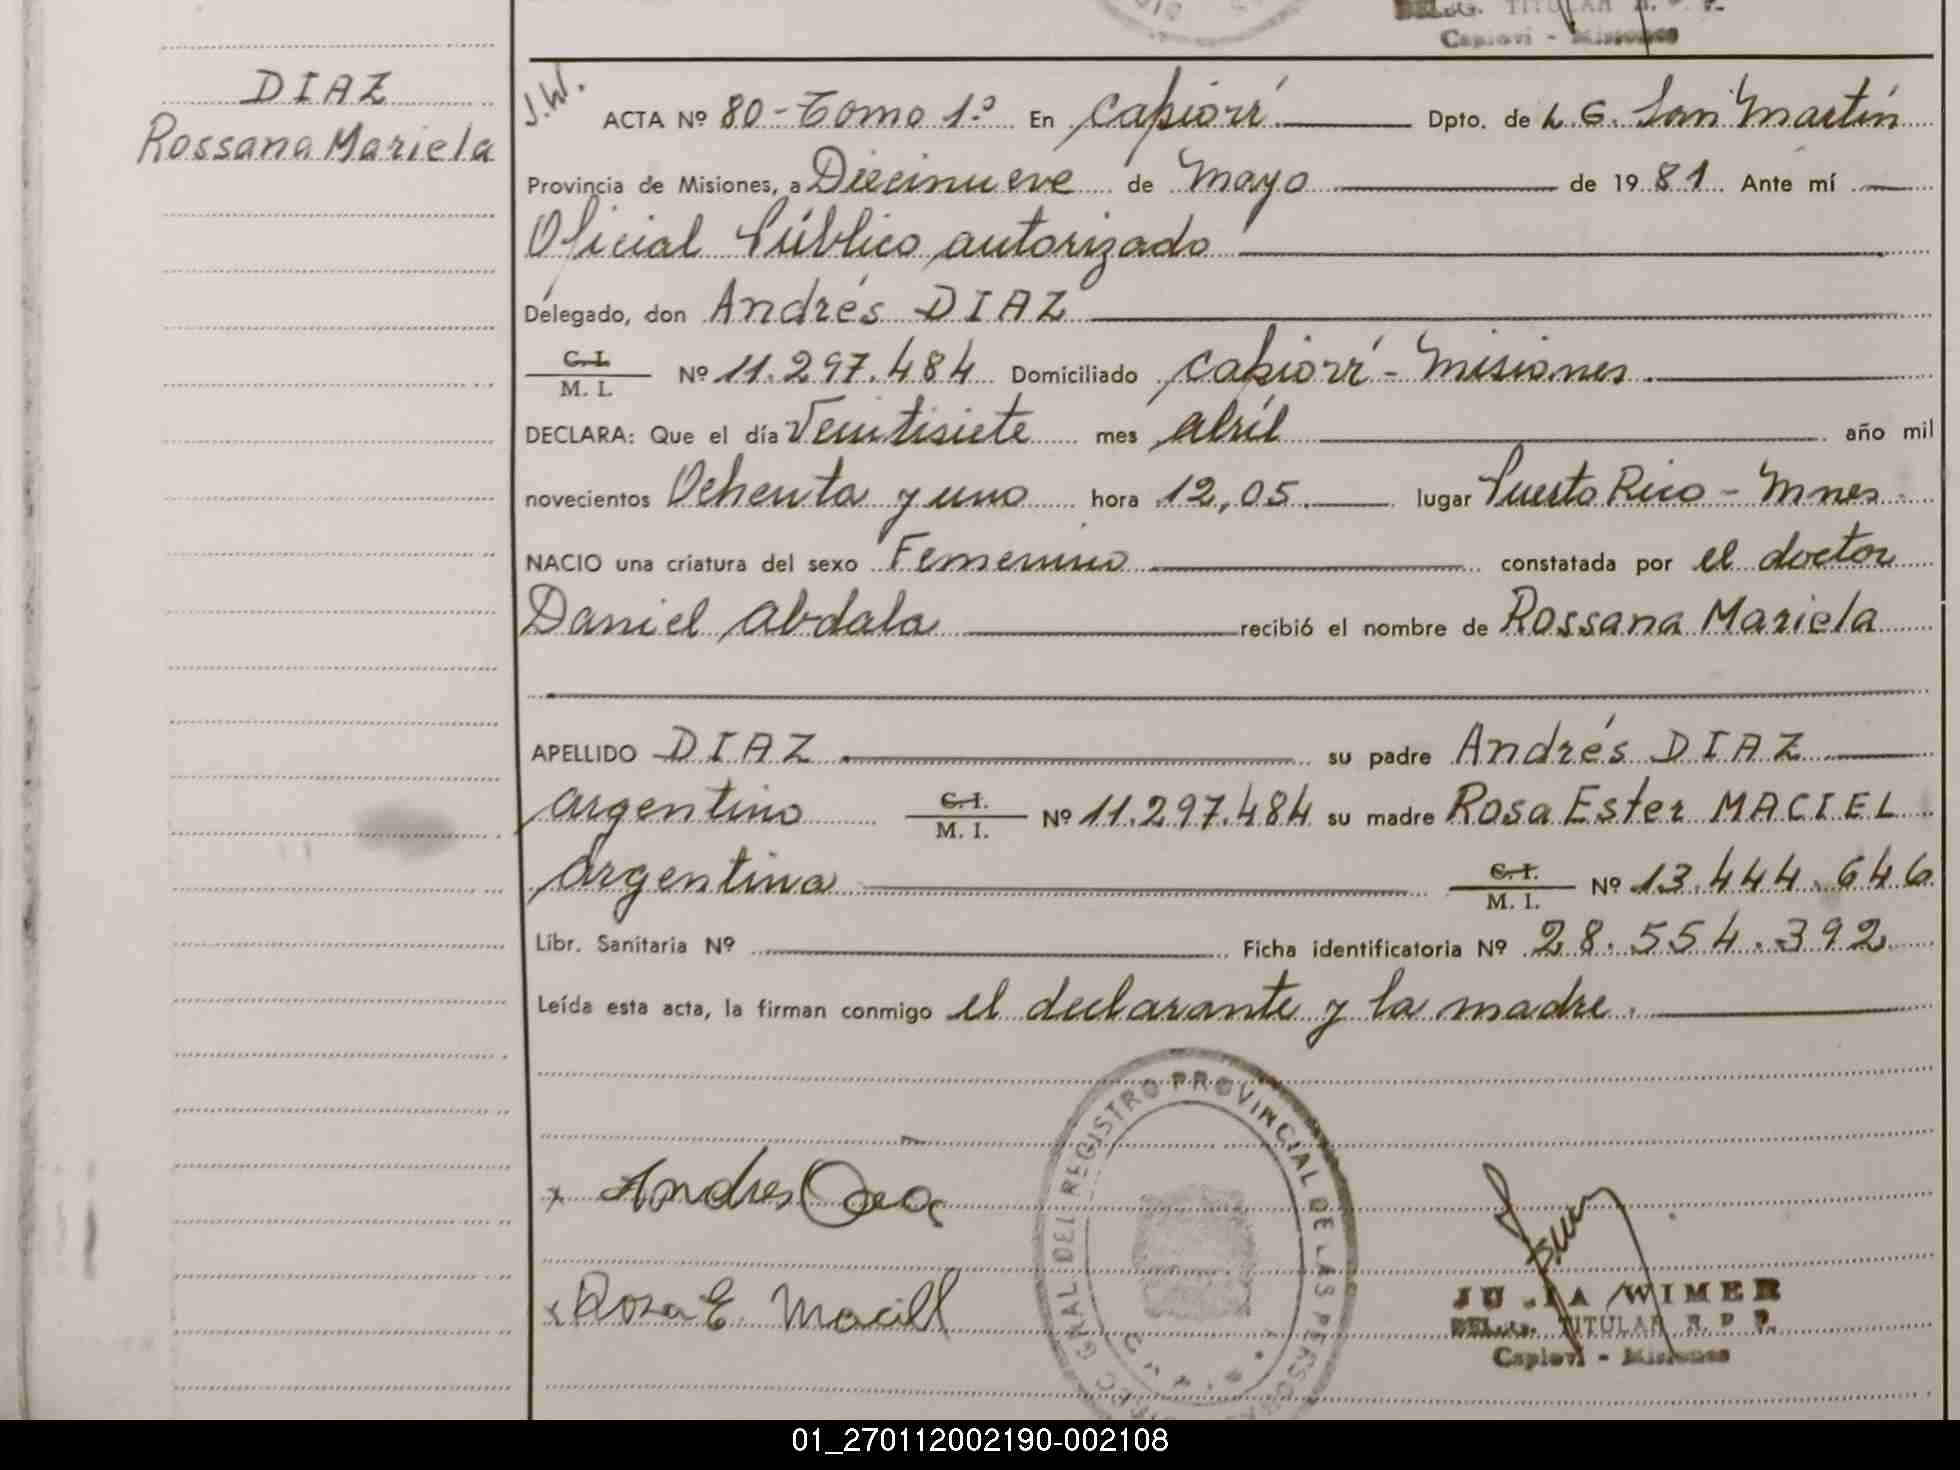 DELEG. TITULAR R. P. P.
Capiovi - Misiones
DIAZ
Rossana Mariela
J.W.
ACTA Nº 80 - Tomo 1º En Capioví Dpto. de L G. San Martín
Provincia de Misiones, a Diecinueve de Mayo de 19 81 Ante mí
Oficial Público autorizado
Delegado, don Andrés DIAZ
C. I.
M. I. Nº 11.297.484 Domiciliado Capioví - Misiones
DECLARA: Que el día Veintisiete mes abril año mil
novecientos Ochenta y uno hora 12,05 lugar Puerto Rico - Mnes
NACIO una criatura del sexo Femenino constatada por el doctor
Daniel Abdala recibió el nombre de Rossana Mariela
APELLIDO DIAZ su padre Andrés DIAZ
argentino C. I. M. I. Nº 11.297.484 su madre Rosa Ester MACIEL
Argentina C. I. M. I. Nº 13.444.646
Libr. Sanitaria Nº Ficha identificatoria Nº 28.554.392
Leída esta acta, la firman conmigo el declarante y la madre.
x Andres
x Rosa E. Maciel
DIREC. GRAL. DEL REGISTRO PROVINCIAL DE LAS PERSONAS
JULIA WIMER
DELEG. TITULAR R. P. P.
Capiovi - Misiones
01_270112002190-002108